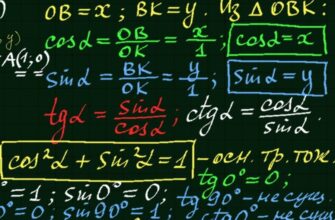 OB = x ; BK = y. Из Δ OBK:
y) cos α = OB/OK = x/1 ; cos α = x
A(1; 0)
sin α = BK/OK = y/1 ; sin α = y
tg α = sin α/cos α ; ctg α = cos α/sin α.
cos²α + sin²α = 1 – осн. тр. тож.
° = 1 ; sin 0° = 0 ; tg 0° = 0 ;
° = 0 ; sin 90° = 1 tg 90° – не сущ